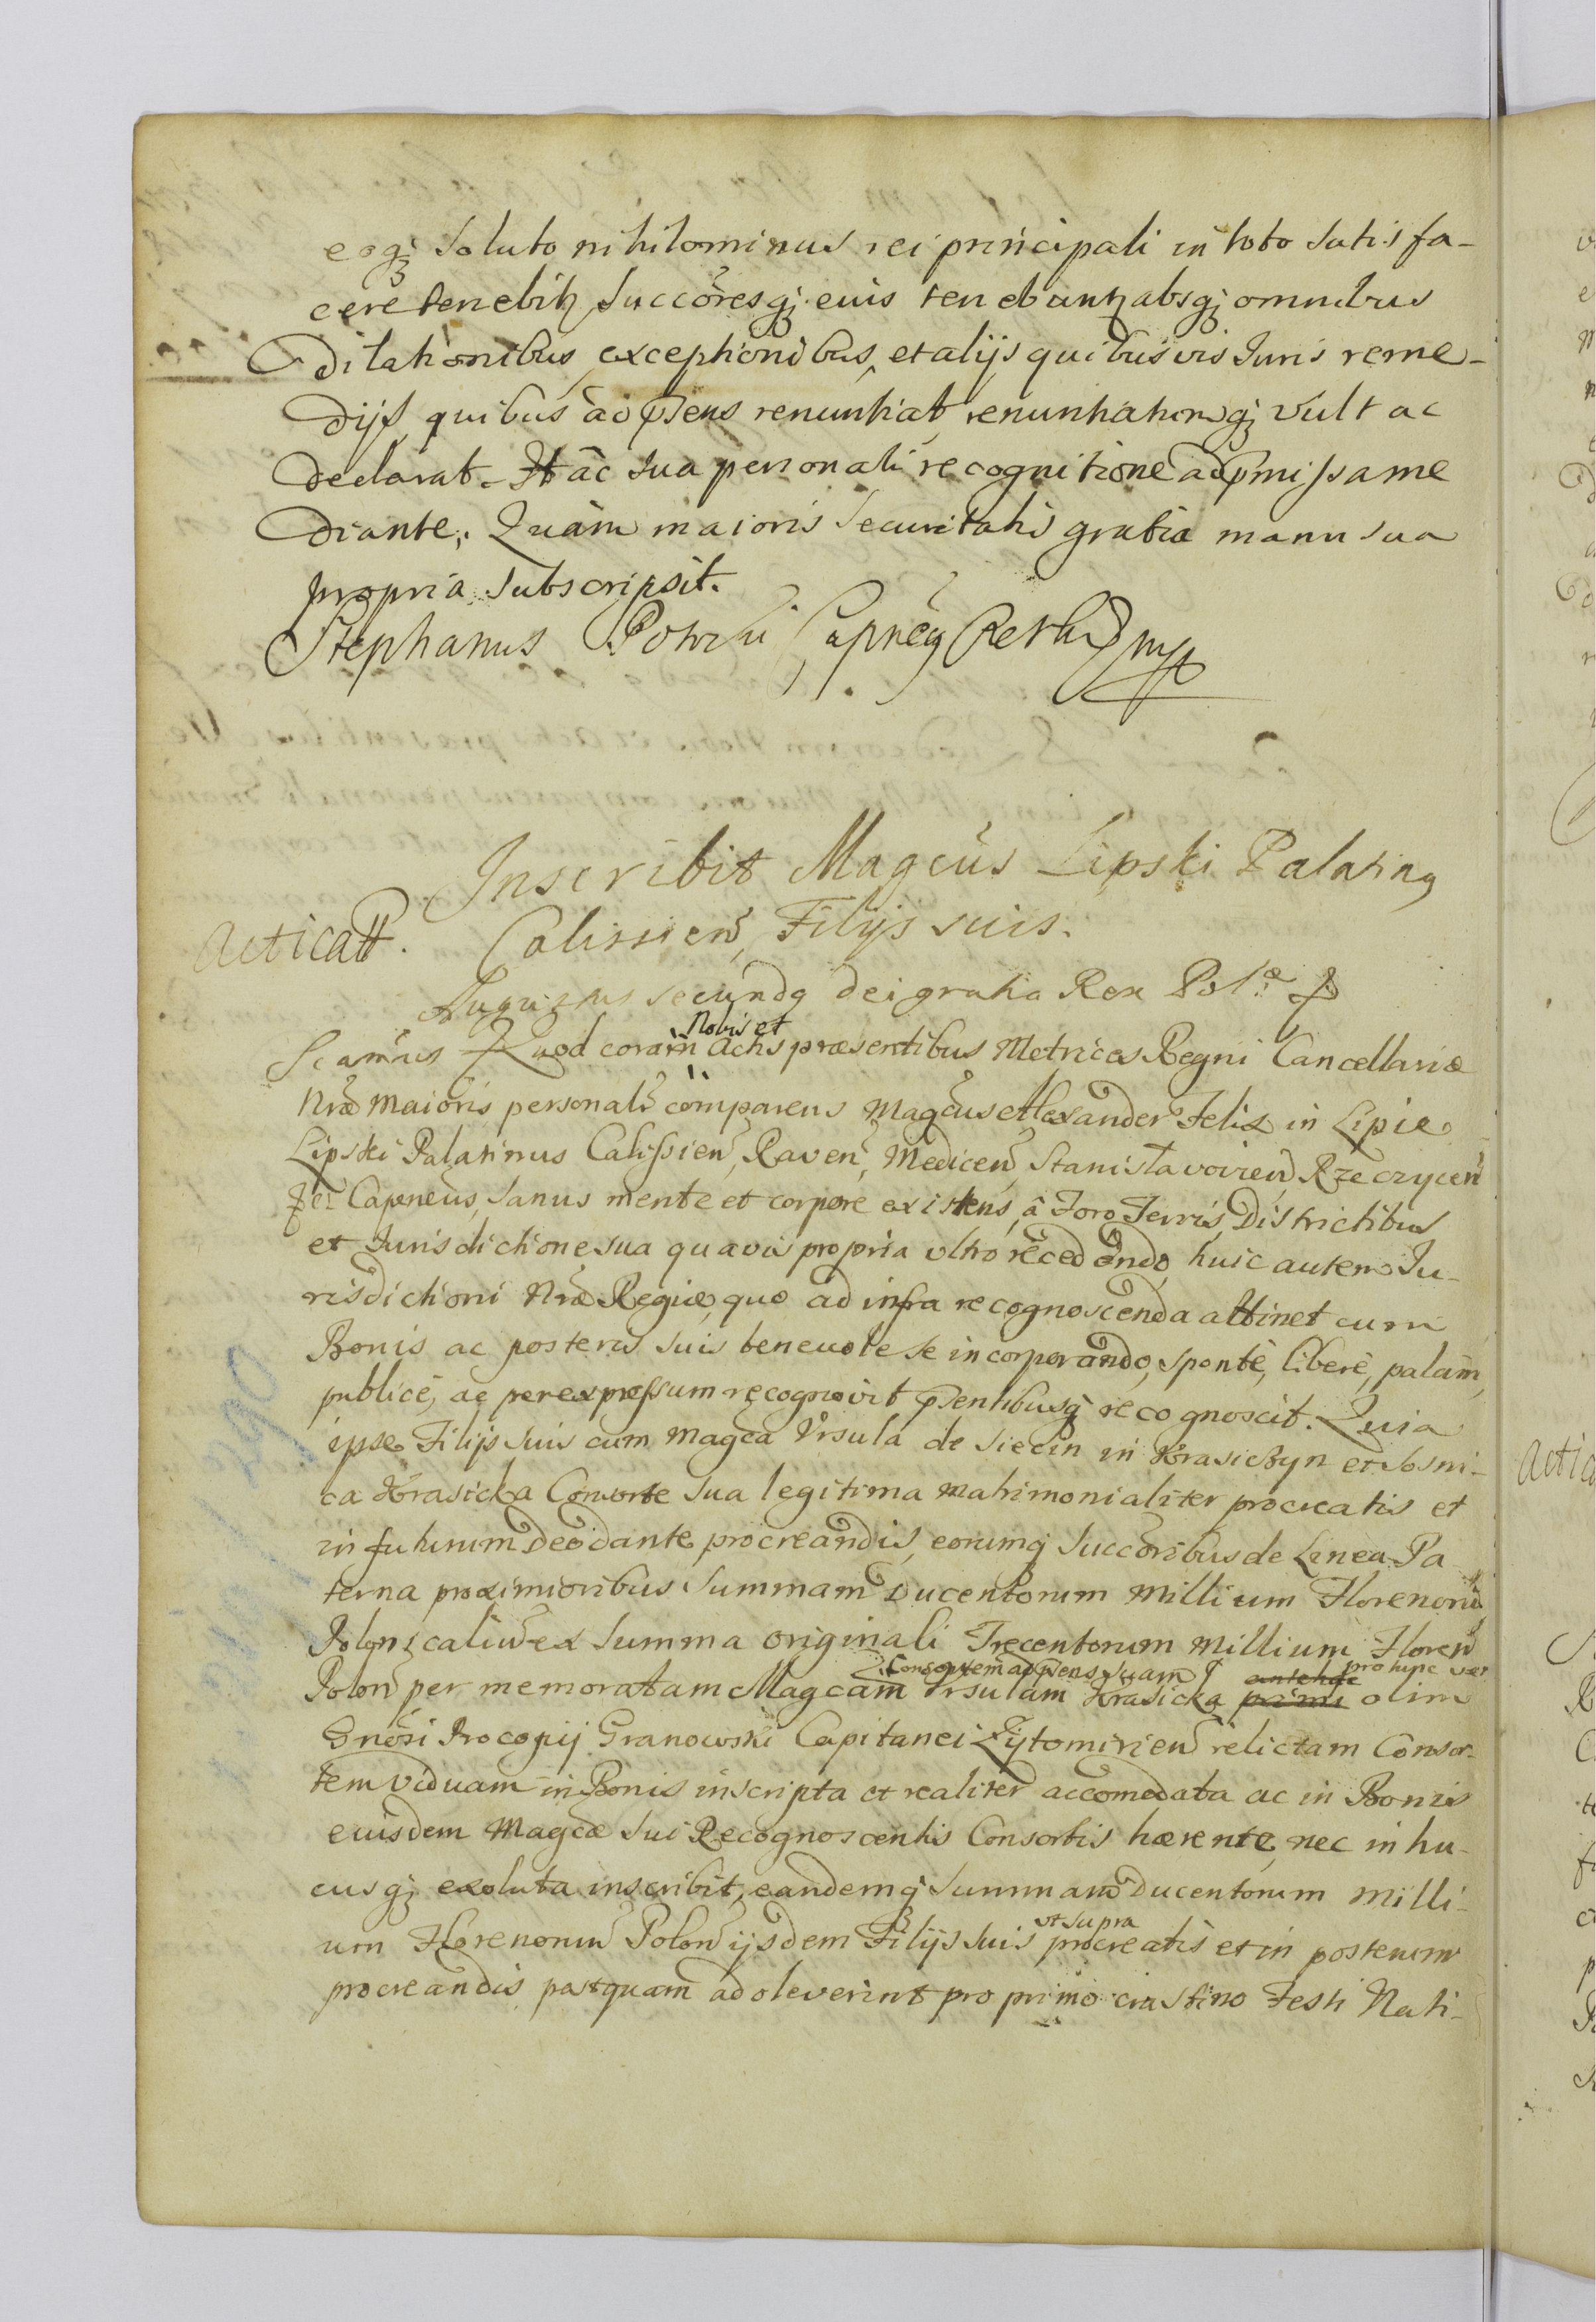 eoq; soluto nihilominus rei principali in toto satisfa-
cere tenebitz Succōresq; eius tenebuntz absq; omnibus
dilationibus, exceptionibus, et alijs quibusvis Juris reme-
dijs, quibus ad pn̄s renuntiat, renuntiatumq; vult ac
declarat. Hāc sua personali recognitione ad p̄missa me
diante. Quàm maioris securitatis gratia manu sua
propria subscripsit.
Stephanus Potocki
Inscribit Magcūs Lipski Palatinq
Calissień, Filijs suis.
Acticatt.
Augustus secundq dei gratia Rex Pol:æ
Nobis et
Scamus Quod coram Actis præsentibus Metrices Regni Cancellariæ
Nr̄æ Maioris personalr̄ comparens Magcūs Alexander Felix in Lipie
Lipski Palatinus Calissień, Raveń, Mediceń, Stanisłavovień, Rzeczyceń
Capneūs, sanus mente et corpore existens, â Foro Terris, Districtibus
et Jurisdictione sua quavis propria ultro recedendo, huic autem Ju-
risdictioni Nr̄æ Regiæ, quo ad infra recognoscenda attinet cum
Bonis ac posteris suis benevole se incorporando, sponte, libere, palam,
publice, ac per expressum recognovit pn̄tibusq; recognoscit. Quia
ipse Filijs suis cum Magca Vrsula de Siecin in Krasiczyn et Sosni-
ca Krasicka Consorte sua legitima matrimonialiter procreatis et
in futurum Deo dante procreandis, eorumq; Succōribus de Linea Pa-
terna proximioribus Summam Ducentorum Millium Florenorū
Poloncaliū ex Summa originali Trecentorum Millium Floreń
Consortem ad pn̄s suam antehac pro tunc
Poloń per memoratam Magcam Vrsulam Krasicka primi olim
Gnēsi Procopij Granowski Capitanei Zytomirień relictam Consor-
tem Viduam in Bonis inscripta et realiter accomodata ac in Bonis
eiusdem Magcæ sui Recognoscentis Consortis hærente, nec in hu-
cusq; exoluta inscribit, eandemq; Summam Ducentorum Milli-
ut supra
um Florenorum Poloń ijsdem Filijs suis procreatis et in posterum
procreandis postquam adoleverint pro primo crastino Festi Nati-